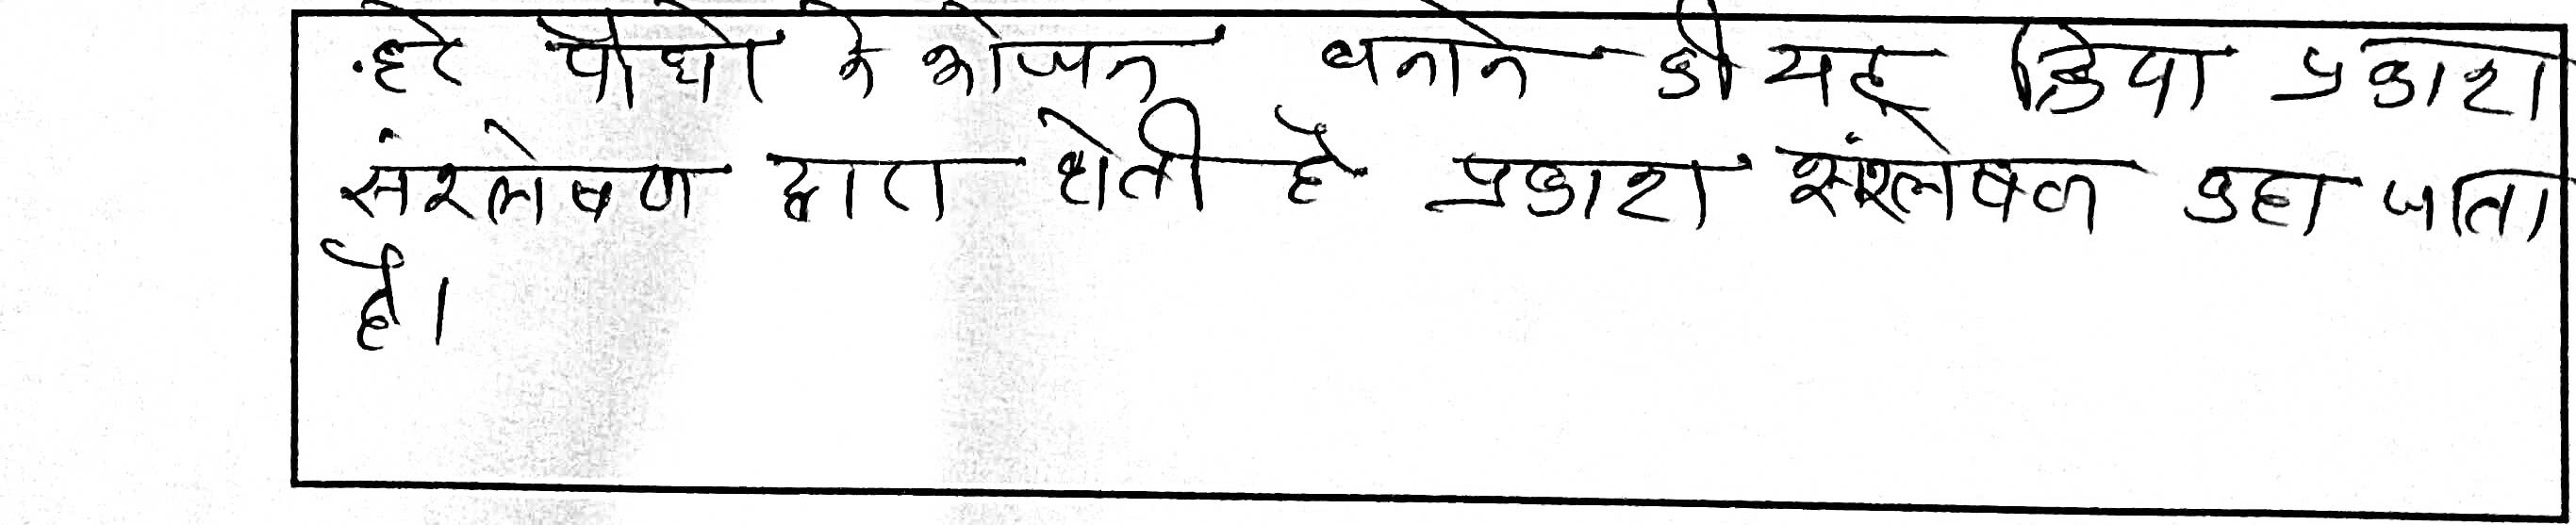 हरे पौधो के भोजन बनाने की यह क्रिया प्रकाश
संश्लेषण द्वारा होती है प्रकाश संश्लेषण कहा जाता
है।